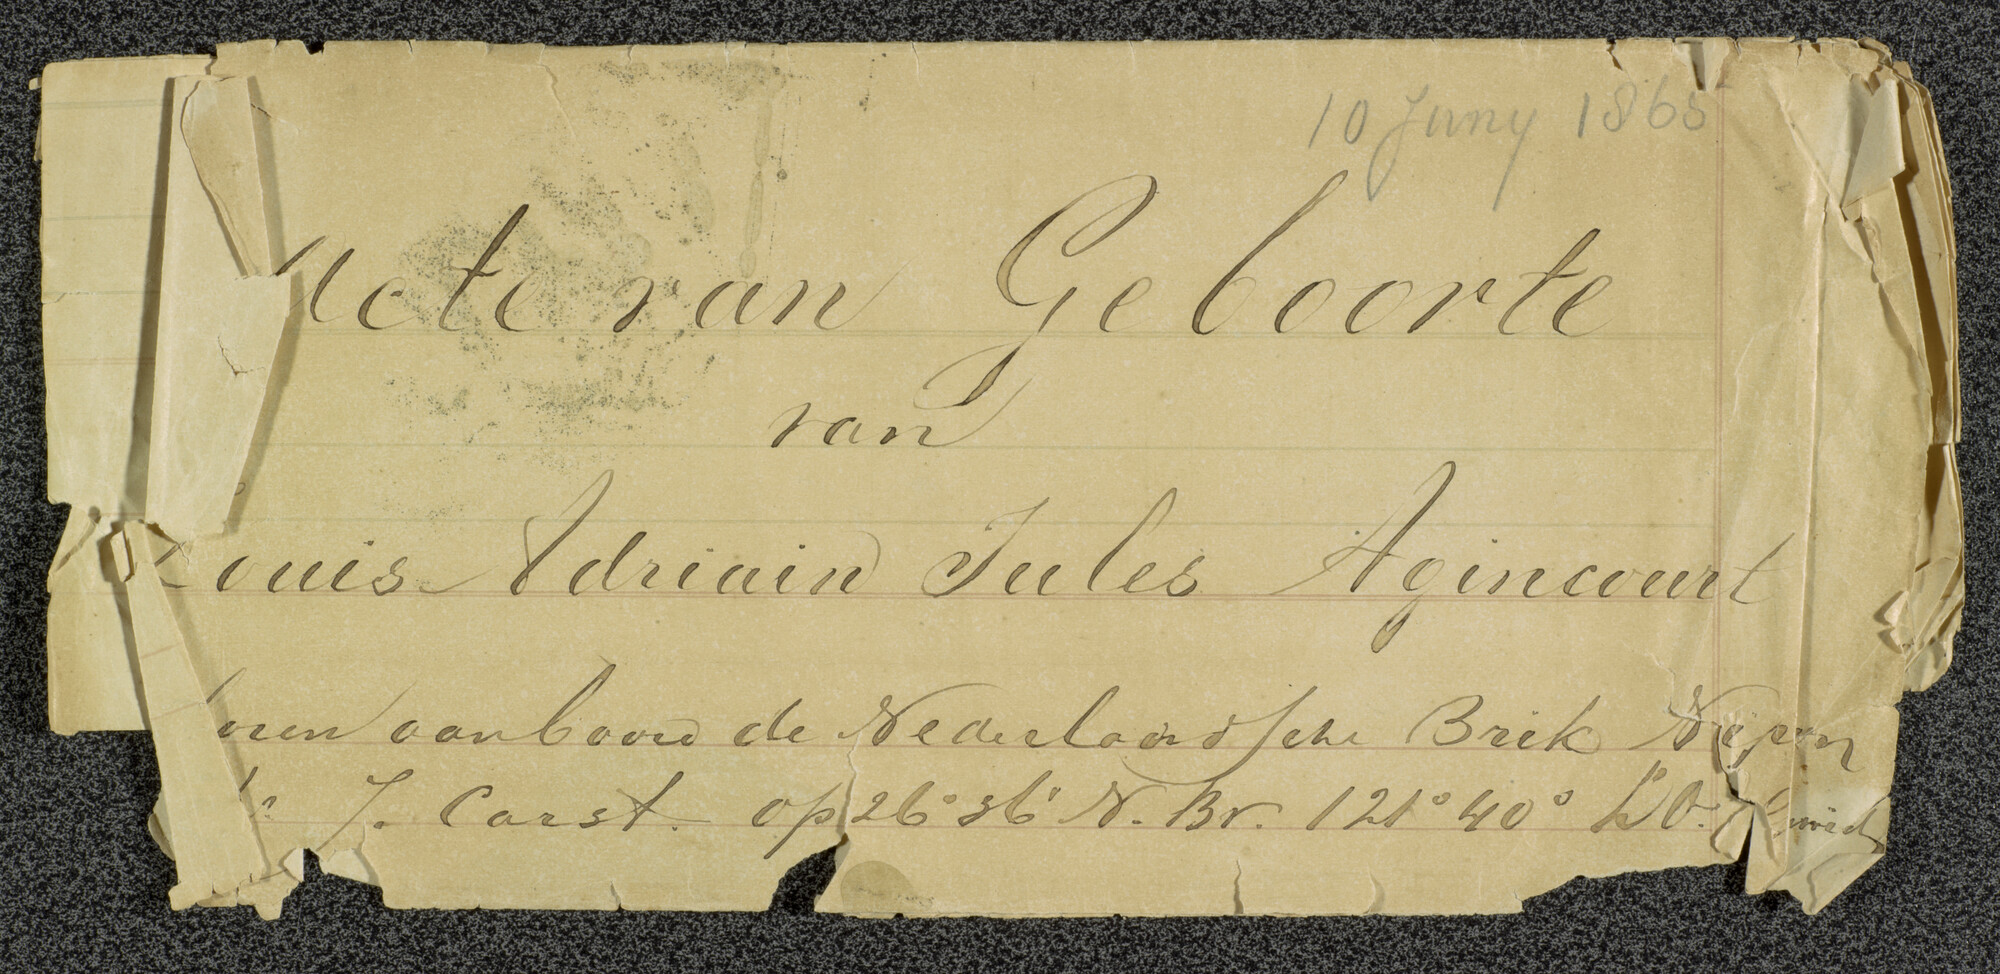 10 Juny 1865
Acte van Geboorte
van
Louis Adriain Jules Agincourt
boren aan boord de Nederlandsche Brik Nipon
J. Carst. op 26° 36' N. Br. 121° 40° L O.